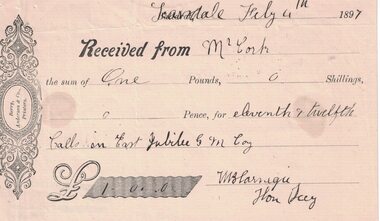 Scarsdale July 4th 1897
Received from Mr York
the sum of One Pounds, 0 Shillings,
0 Pence, for eleventh & twelfth
Calls in East Jubilee G M Coy
£ 1.0.0
W B Carnegie
Hon Secy
Berry,
Anderson & Co.,
Printers.